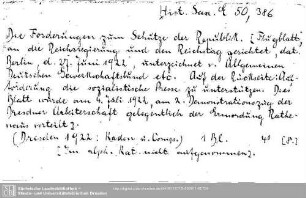 Hist. Sax. G 50, 386
Die Forderungen zum Schutze der Republik. [Flugblatt,
an die Reichsregierung und den Reichstag gerichtet, dat.
Berlin, d. 27. Juni 1922, unterzeichnet v. Allgemeinen
Deutschen Gewerkschaftsbund etc. Auf der Rückseite:
die sozialistische Presse zu unterstützen. Dies
Blatt wurde am 4. Juli 1922, am 2. Demonstrationszug der
Dresdner Arbeiterschaft gelegentlich der Ermordung Rathe-
naus verteilt.]
(Dresden 1922: Kaden u. Comp.) 1 Bl. 4°
[Im alph. Kat. nicht aufgenommen]